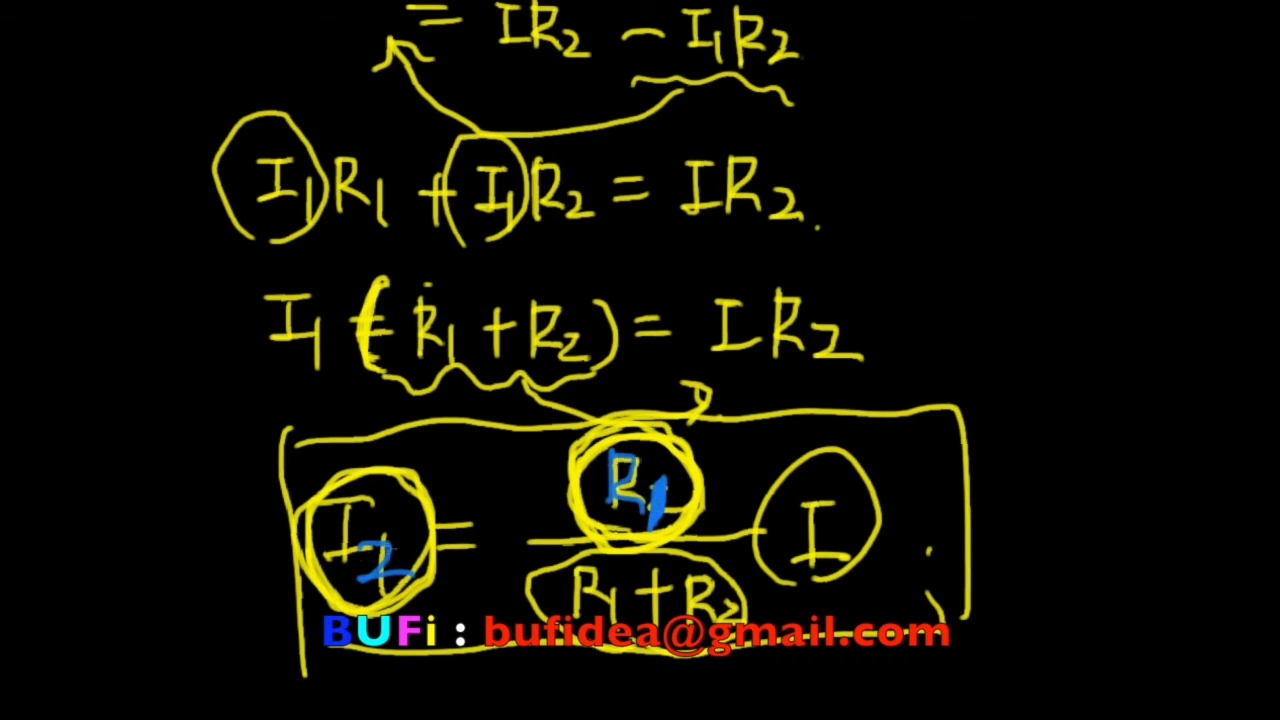 = IR₂ - I₁R₂
I₁R₁ + I₁R₂ = IR₂.
I₁ (R₁ + R₂) = IR₂
I₂ = R₁/(R₁ + R₂) I
BUFi : bufidea@gmail.com